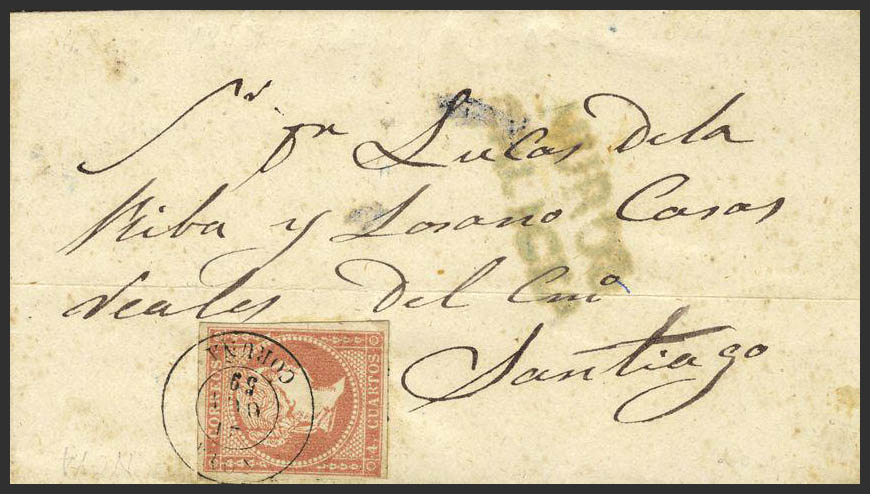 Sr Dn Lucas Dela
Riba y Losano Casas
reales Del Cmo
Santiago
CORREOS
4 CUARTOS
CORUÑA
59